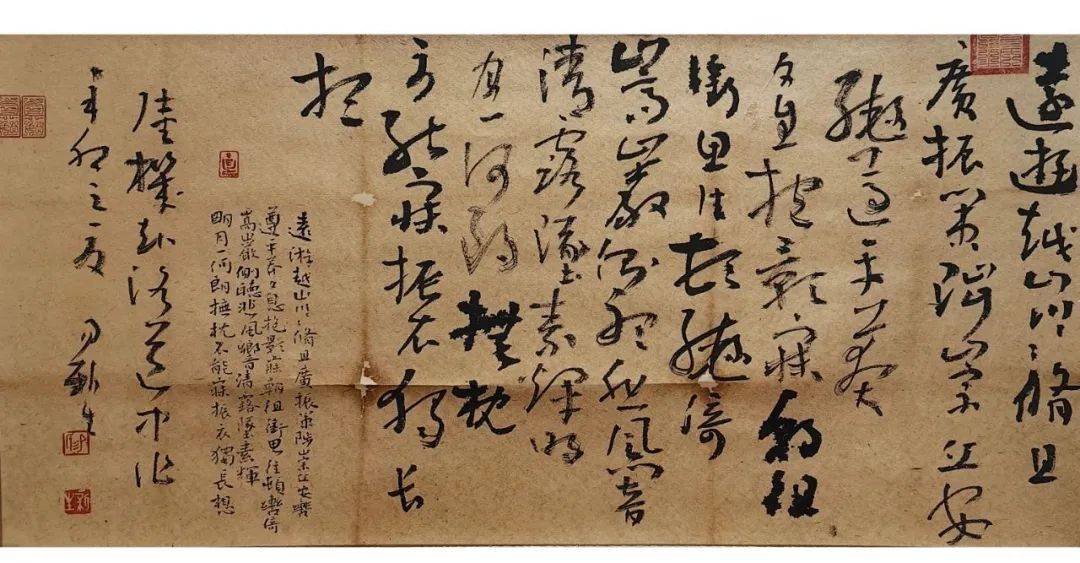 遠遊越山川々脩且
廣振策陟崇丘安
轡遵平莽
夕息抱影寐朝徂
銜思往頓轡倚
嵩巖側聽悲風響
清露墜素輝明
月一何朗撫枕
不能寐振衣獨長
想
遠游越山川々脩且廣振策陟崇丘安轡
遵平莽夕息抱影寐朝徂銜思往頓轡倚
嵩巖側聽悲風響清露墜素輝
明月一何朗撫枕不能寐振衣獨長想
陸機赴洛道中作
辛卯之夏 新生